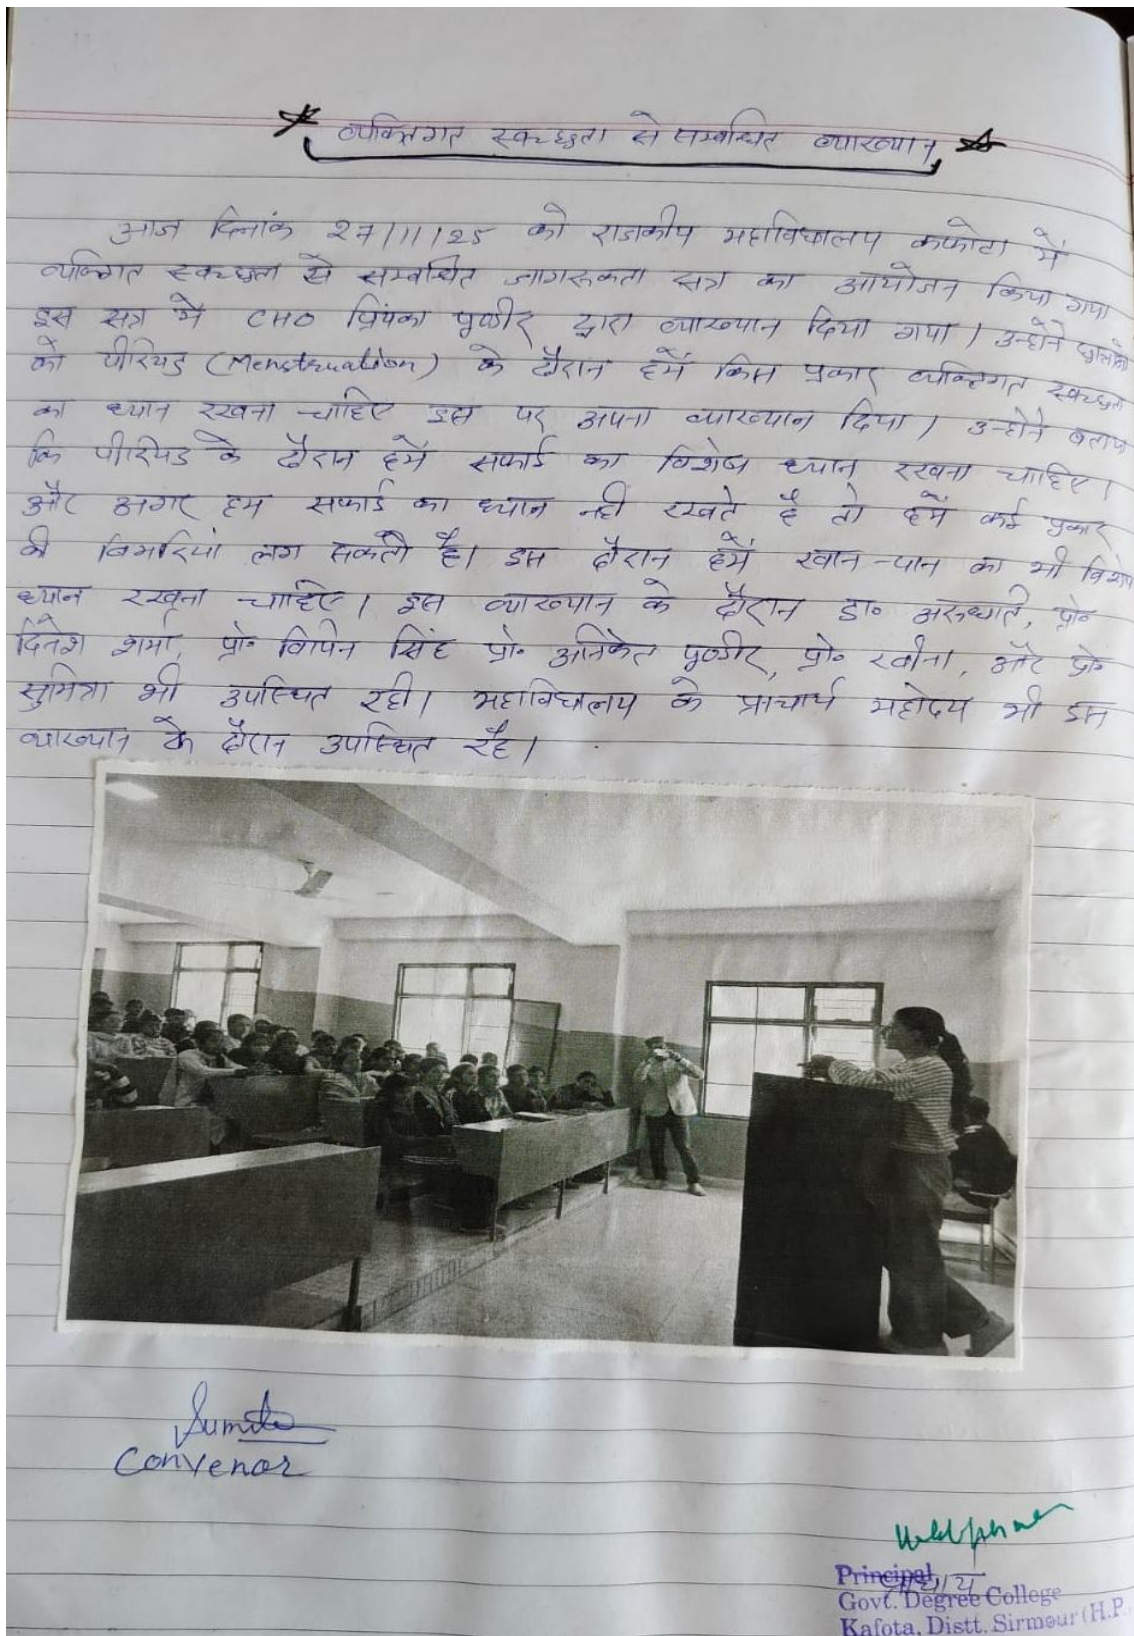 व्यक्तिगत स्वच्छता से सम्बन्धित व्याख्यान
आज दिनांक 27/11/25 को राजकीय महाविद्यालय कफोटा में
व्यक्तिगत स्वच्छता से सम्बन्धित जागरूकता सत्र का आयोजन किया गया
इस सत्र में CHO प्रियंका पुण्डीर द्वारा व्याख्यान दिया गया। उन्होंने छात्राओं
को पीरियड (Menstruation) के दौरान हमें किस प्रकार व्यक्तिगत स्वच्छता
का ध्यान रखना चाहिए इस पर अपना व्याख्यान दिया। उन्होंने बताया
कि पीरियड के दौरान हमें सफाई का विशेष ध्यान रखना चाहिए।
और अगर हम सफाई का ध्यान नही रखते है तो हमें कई प्रकार
की बिमारियां लग सकती है। इस दौरान हमें खान-पान का भी विशेष
ध्यान रखना चाहिए। इस व्याख्यान के दौरान डा॰ अरुन्धति, प्रो॰
दिनेश शर्मा, प्रो॰ विपिन सिंह प्रो॰ अनिकेत पुण्डीर, प्रो॰ रवीना, और प्रो॰
सुमित्रा भी उपस्थित रही। महाविद्यालय के प्राचार्य महोदय भी इस
व्याख्यान के दौरान उपस्थित रहे।
Convenor
Principal
Govt. Degree College
Kafota, Distt. Sirmour (H.P.